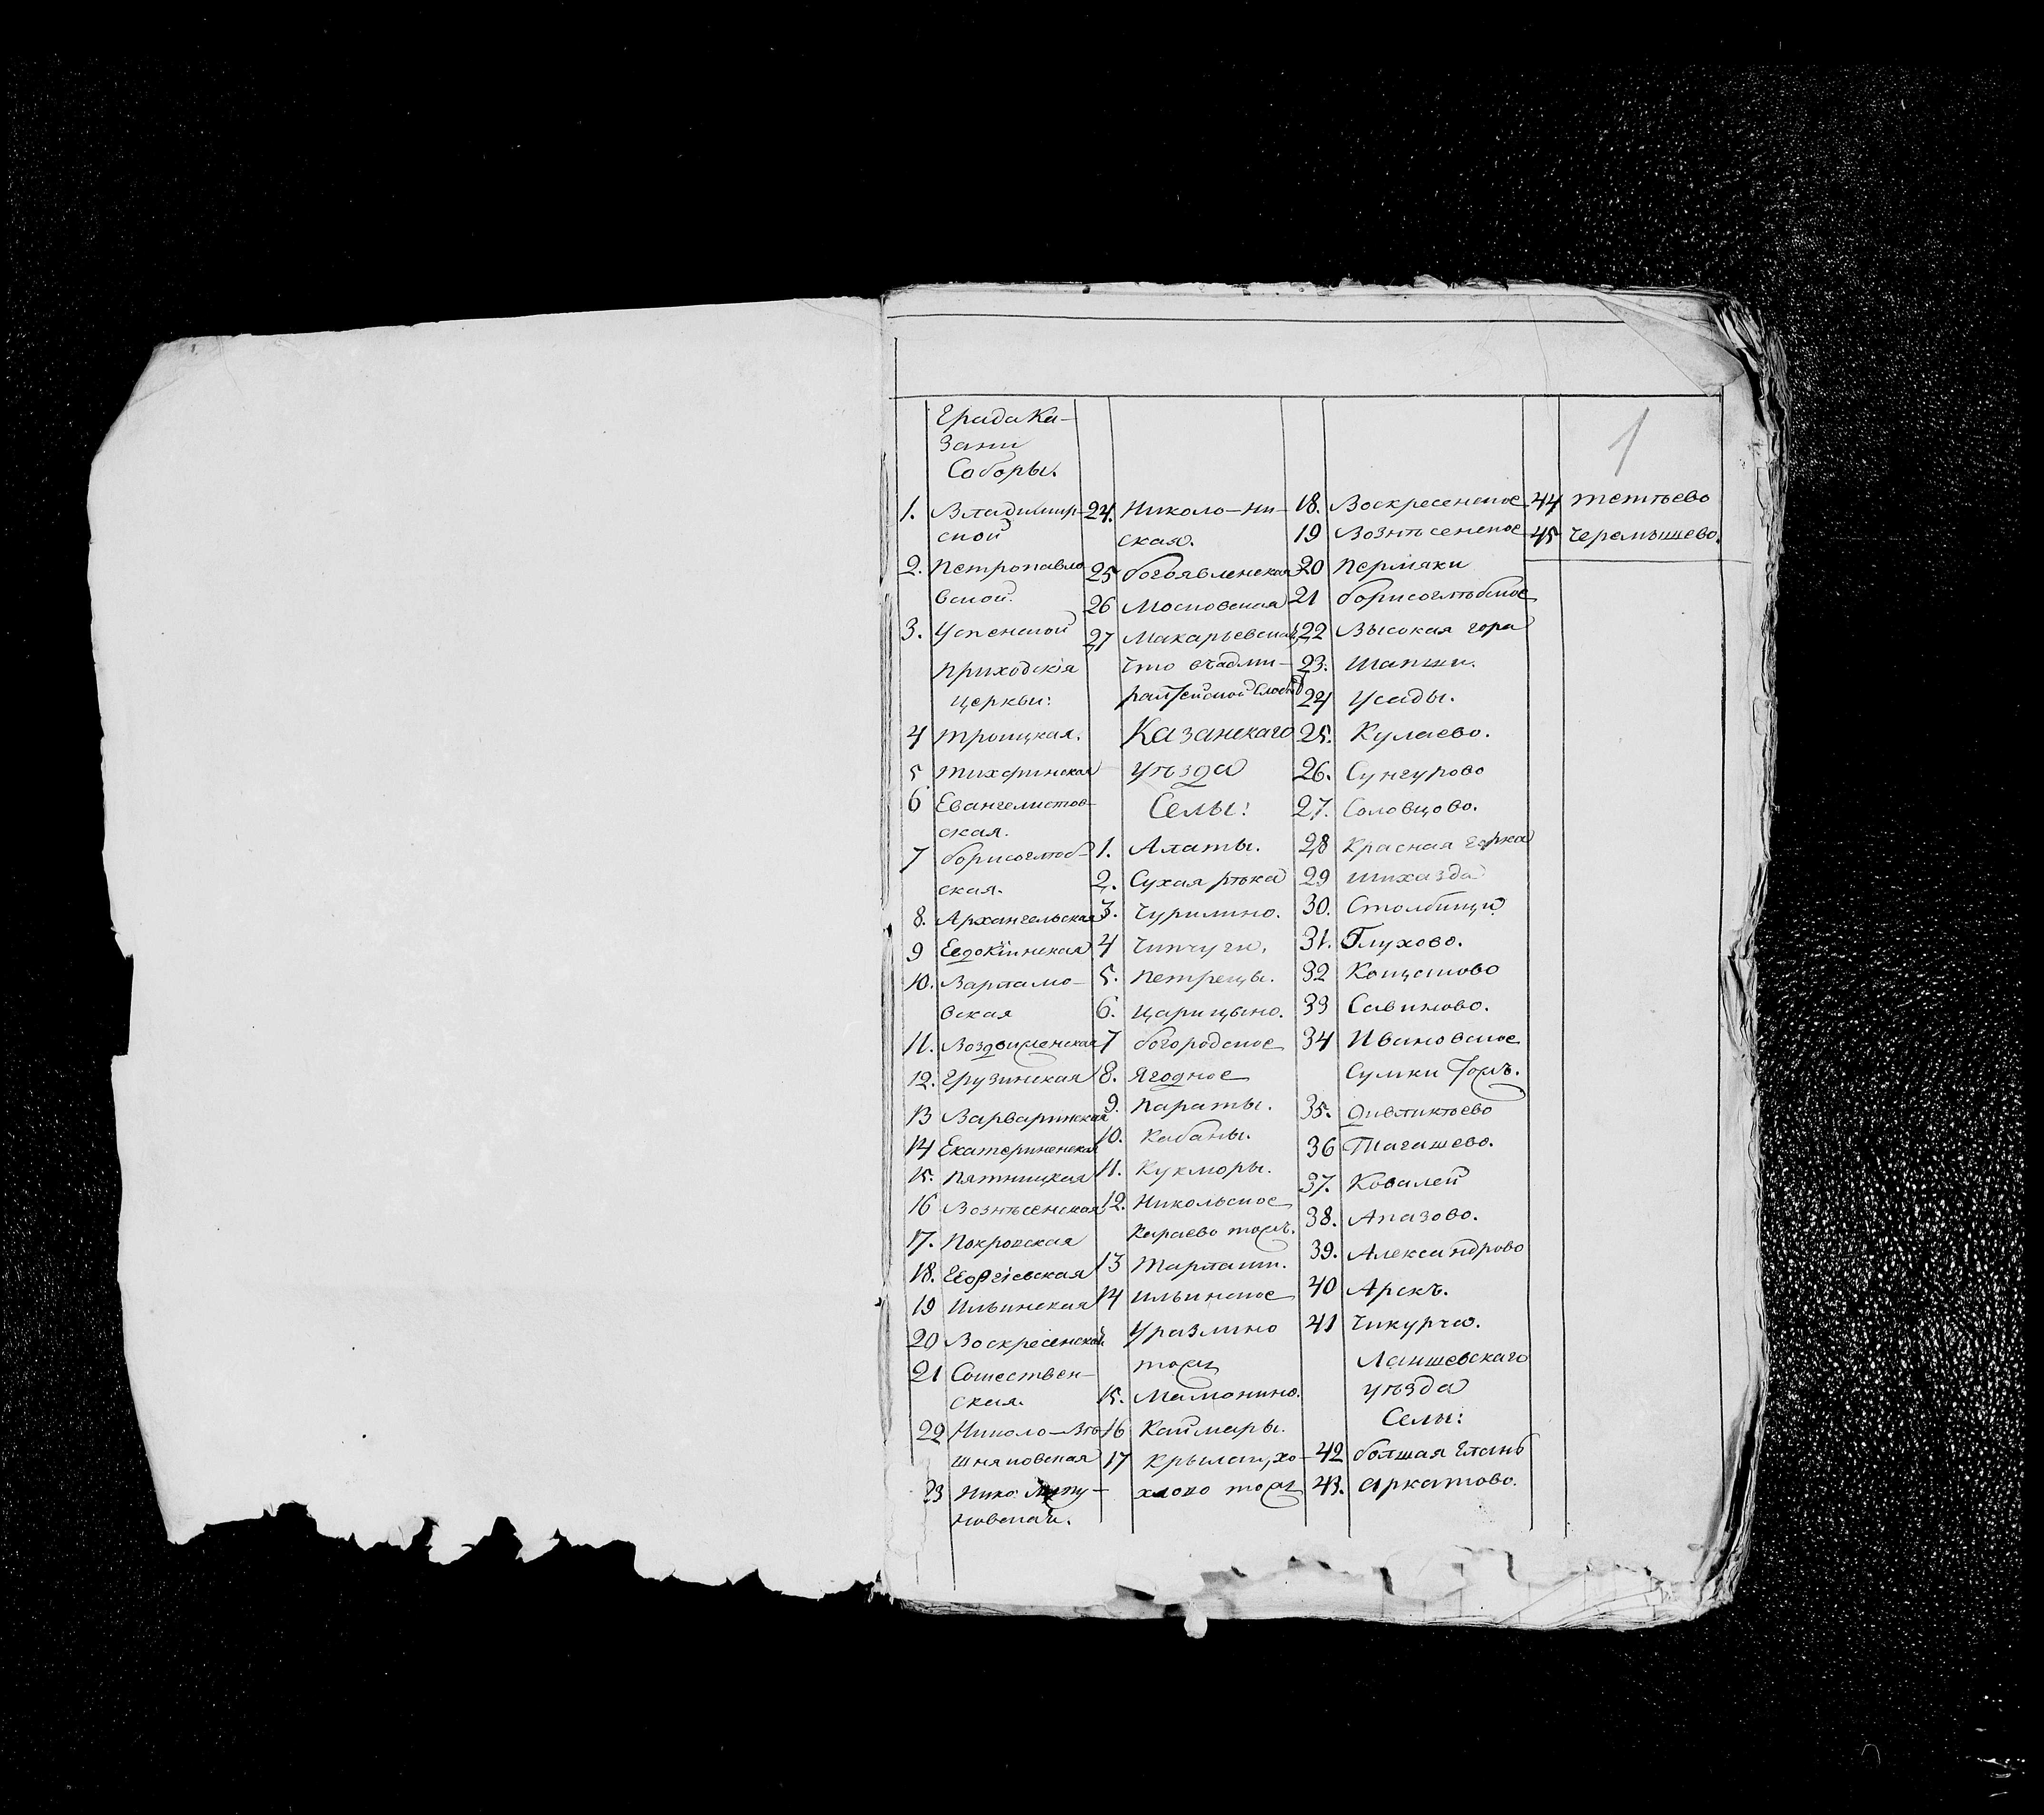 1
Града Ка-
зани
Соборы.
1. Владимир-
ской
2. Петропавло
вской.
3. Успенской
Приходскія
церкви:
4 Троицкая.
5 Тихфинская
6 Евангелистов-
ская.
7 Борисоглѣб-
ская.
8. Архангельская
9 Евдокіинская
10. Варламо-
вская
11. Воздвиженская
12. Грузинская
13 Варваринская
14 Екатериненская
15. Пятницкая
16 Вознѣсенская
17. Покровская
18. Георгіевская
19 Ильинская
20 Воскресенской
21 Сошествен-
ская.
22 Николо-Вѣ
шняковская
23 Нико:
новская.
24. Николо-Ни-
ская.
25 Богоявленская
26 Московская
27 Макарьевская,
что въ адми-
ралтейской слобод
Казанскаго
уѣзда
Селы:
1. Алаты.
2. Сухая рѣка
3. Чурилино.
4 Чипчуги.
5. Петрецы.
6. Царицыно.
7 Богородское
8. Ягодное
9. Параты.
10. Кабаны.
11. Кукморы.
12. Никольское
Караево тожъ.
13 Тарлаши.
14 Ильинское
Уразлино
тожъ
15. Мамонино.
16 Каймары.
17 Крылаи, хо-
хлово тожъ
18. Воскресенское
19 Вознѣсенское
20 Пермяки
21 Борисоглѣбское
22 Высокая гора
23. Шапши.
24 Усады.
25. Кулаево.
26. Сунгурово
27. Соловцово.
28 Красная горка
29 Шихазда
30. Столбищи
31. Глухово.
32 Кощаково
33 Савиново.
34 Ивановское
Сумки тожъ.
35. Апазово
36 Тагашево.
37. Ковалей
38. Апазово.
39. Александрово
40 Арскъ.
41 Чикурча.
Лаишевскаго
уѣзда
Селы:
42 Болшая Елань
43. Аркатово.
44 Тетѣево
45 Черемышево.